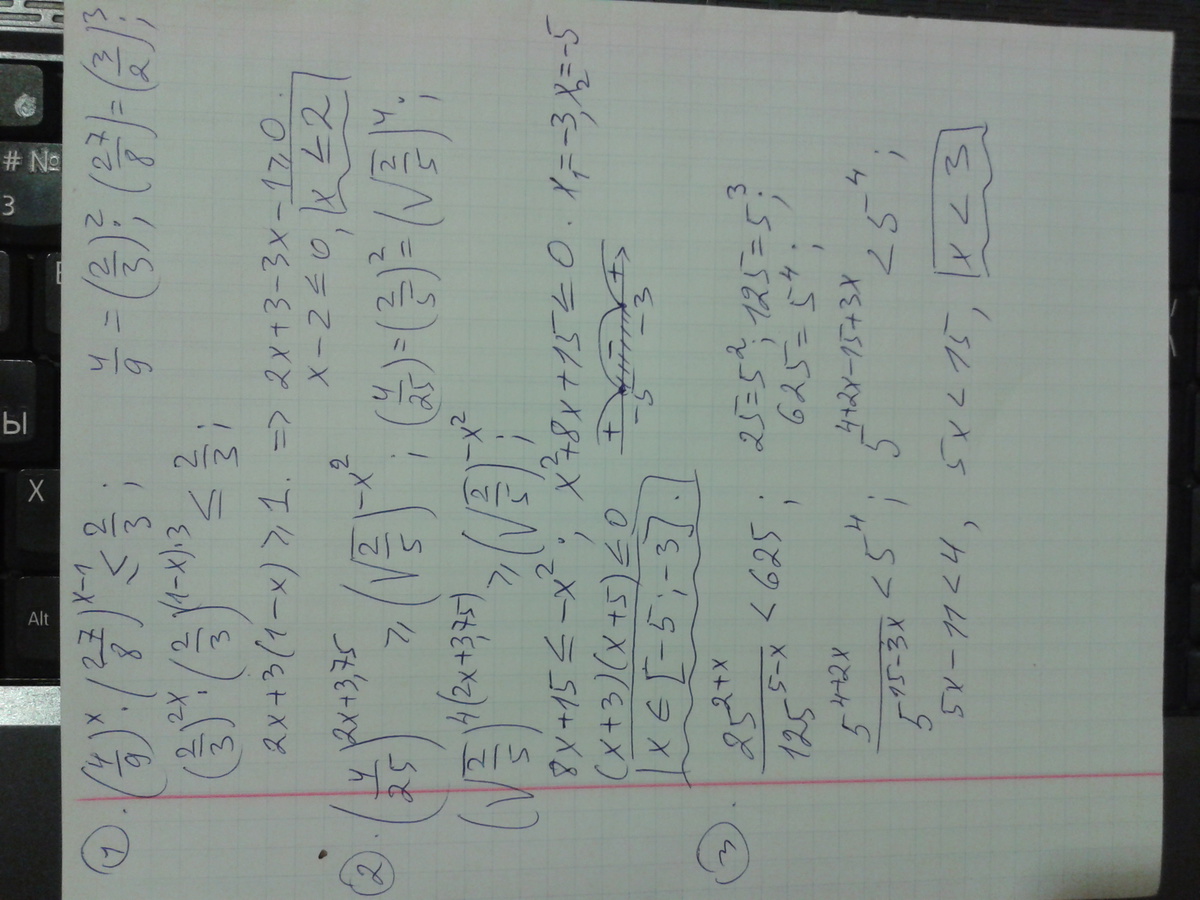 ① . (4/9)^x · (27/8)^(x-1) ≤ 2/3 ; 4/9 = (2/3)^2 ; (27/8) = (3/2)^3 ;
(2/3)^(2x) · (2/3)^((1-x)·3) ≤ 2/3 ;
2x+3(1-x) ≥ 1. => 2x+3-3x-1 ≥ 0.
x-2 ≤ 0, x ≤ 2
② . (4/25)^(2x+3,75) ≥ (√(2/5))^(-x^2) ; (4/25) = (2/5)^2 = (√(2/5))^4 . ;
(√(2/5))^(4(2x+3,75)) ≥ (√(2/5))^(-x^2) ;
8x+15 ≤ -x^2 ; x^2+8x+15 ≤ 0 . x₁=-3, x₂=-5
(x+3)(x+5) ≤ 0 + - +
-5 -3
x ∈ [-5 ; -3] .
③ . 25^(2+x) / 125^(5-x) < 625 ; 25=5^2 ; 125=5^3 ;
625=5^4 ;
5^(4+2x) / 5^(15-3x) < 5^4 ; 5^(4+2x-15+3x) < 5^4 ;
5x-11 < 4, 5x < 15, x < 3
Alt
X
Ы
# №
3